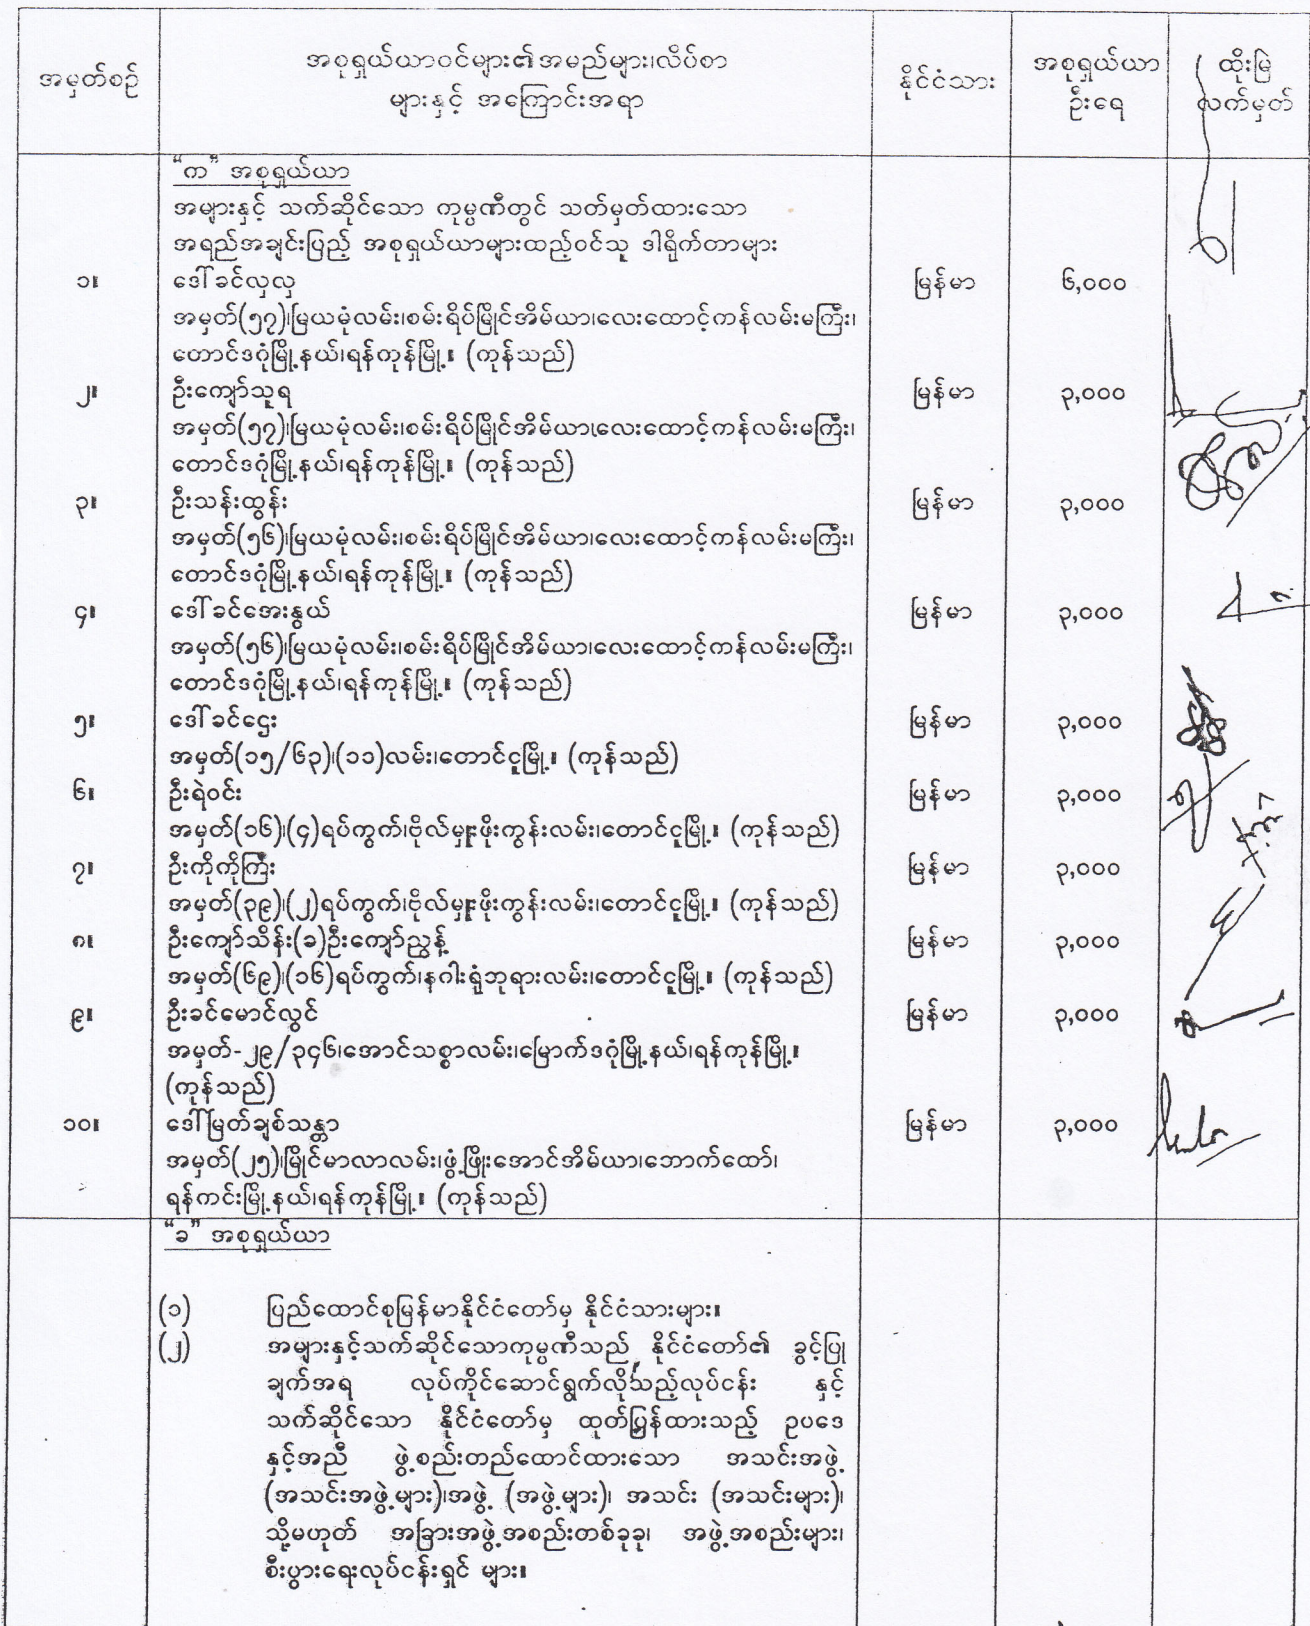 အမှတ်စဉ်
အစုရှယ်ယာဝင်များ၏အမည်များ၊လိပ်စာ
များနှင့် အကြောင်းအရာ
နိုင်ငံသား
အစုရှယ်ယာ
ဦးရေ
ထိုးမြဲ
လက်မှတ်
“က” အစုရှယ်ယာ
အများနှင့် သက်ဆိုင်သော ကုမ္ပဏီတွင် သတ်မှတ်ထားသော
အရည်အချင်းပြည့် အစုရှယ်ယာများထည့်ဝင်သူ ဒါရိုက်တာများ
၁။ ဒေါ်ခင်လှလှ မြန်မာ ၆,၀၀၀
အမှတ်(၅၇)၊မြယမုံလမ်း၊စမ်းရိပ်မြိုင်အိမ်ယာ၊လေးထောင့်ကန်လမ်းမကြီး၊
တောင်ဒဂုံမြို့နယ်၊ရန်ကုန်မြို့။ (ကုန်သည်)
၂။ ဦးကျော်သူရ မြန်မာ ၃,၀၀၀
အမှတ်(၅၇)၊မြယမုံလမ်း၊စမ်းရိပ်မြိုင်အိမ်ယာ၊လေးထောင့်ကန်လမ်းမကြီး၊
တောင်ဒဂုံမြို့နယ်၊ရန်ကုန်မြို့။ (ကုန်သည်)
၃။ ဦးသန်းထွန်း မြန်မာ ၃,၀၀၀
အမှတ်(၅၆)၊မြယမုံလမ်း၊စမ်းရိပ်မြိုင်အိမ်ယာ၊လေးထောင့်ကန်လမ်းမကြီး၊
တောင်ဒဂုံမြို့နယ်၊ရန်ကုန်မြို့။ (ကုန်သည်)
၄။ ဒေါ်ခင်အေးနွယ် မြန်မာ ၃,၀၀၀
အမှတ်(၅၆)၊မြယမုံလမ်း၊စမ်းရိပ်မြိုင်အိမ်ယာ၊လေးထောင့်ကန်လမ်းမကြီး၊
တောင်ဒဂုံမြို့နယ်၊ရန်ကုန်မြို့။ (ကုန်သည်)
၅။ ဒေါ်ခင်ဌေး မြန်မာ ၃,၀၀၀
အမှတ်(၁၅/၆၃)၊(၁၁)လမ်း၊တောင်ငူမြို့။ (ကုန်သည်)
၆။ ဦးရဲဝင်း မြန်မာ ၃,၀၀၀
အမှတ်(၁၆)၊(၄)ရပ်ကွက်၊ဗိုလ်မှူးဖိုးကွန်းလမ်း၊တောင်ငူမြို့။ (ကုန်သည်)
၇။ ဦးကိုကိုကြီး မြန်မာ ၃,၀၀၀
အမှတ်(၃၉)၊(၂)ရပ်ကွက်၊ဗိုလ်မှူးဖိုးကွန်းလမ်း၊တောင်ငူမြို့။ (ကုန်သည်)
၈။ ဦးကျော်သိန်း(ခ)ဦးကျော်ညွန့် မြန်မာ ၃,၀၀၀
အမှတ်(၆၉)၊(၁၆)ရပ်ကွက်၊နဂါးရုံဘုရားလမ်း၊တောင်ငူမြို့။ (ကုန်သည်)
၉။ ဦးခင်မောင်လွင် မြန်မာ ၃,၀၀၀
အမှတ်-၂၉/၃၄၆၊အောင်သစ္စာလမ်း၊မြောက်ဒဂုံမြို့နယ်၊ရန်ကုန်မြို့။
(ကုန်သည်)
၁၀။ ဒေါ်မြတ်ချစ်သန္တာ မြန်မာ ၃,၀၀၀
အမှတ်(၂၅)၊မြိုင်မာလာလမ်း၊ဖွံ့ဖြိုးအောင်အိမ်ယာ၊ဘောက်ထော်၊
ရန်ကင်းမြို့နယ်၊ရန်ကုန်မြို့။ (ကုန်သည်)
“ခ” အစုရှယ်ယာ
(၁) ပြည်ထောင်စုမြန်မာနိုင်ငံတော်မှ နိုင်ငံသားများ။
(၂) အများနှင့်သက်ဆိုင်သောကုမ္ပဏီသည် နိုင်ငံတော်၏ ခွင့်ပြု
ချက်အရ လုပ်ကိုင်ဆောင်ရွက်လိုသည့်လုပ်ငန်း နှင့်
သက်ဆိုင်သော နိုင်ငံတော်မှ ထုတ်ပြန်ထားသည့် ဥပဒေ
နှင့်အညီ ဖွဲ့စည်းတည်ထောင်ထားသော အသင်းအဖွဲ့
(အသင်းအဖွဲ့များ)၊အဖွဲ့ (အဖွဲ့များ)၊ အသင်း (အသင်းများ)၊
သို့မဟုတ် အခြားအဖွဲ့အစည်းတစ်ခုခု၊ အဖွဲ့အစည်းများ၊
စီးပွားရေးလုပ်ငန်းရှင် များ။